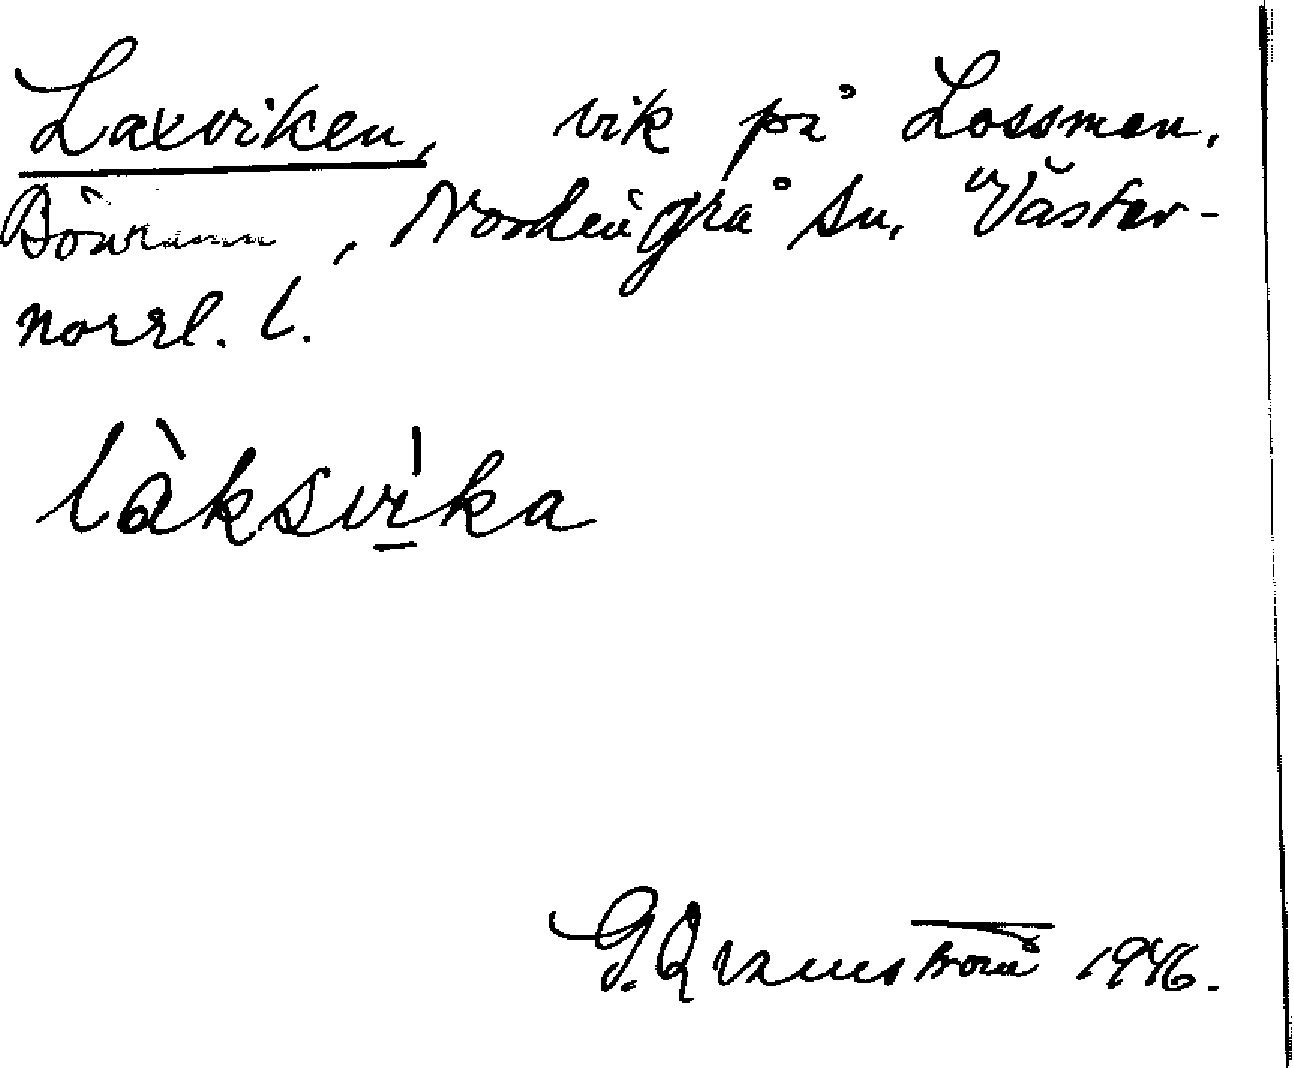 Laxviken, vik på Lossmen,
Bönhamn, Nordingrå sn, Väster-
norrl. l.
làksvi̱ka
G. Qvarnström 1946.